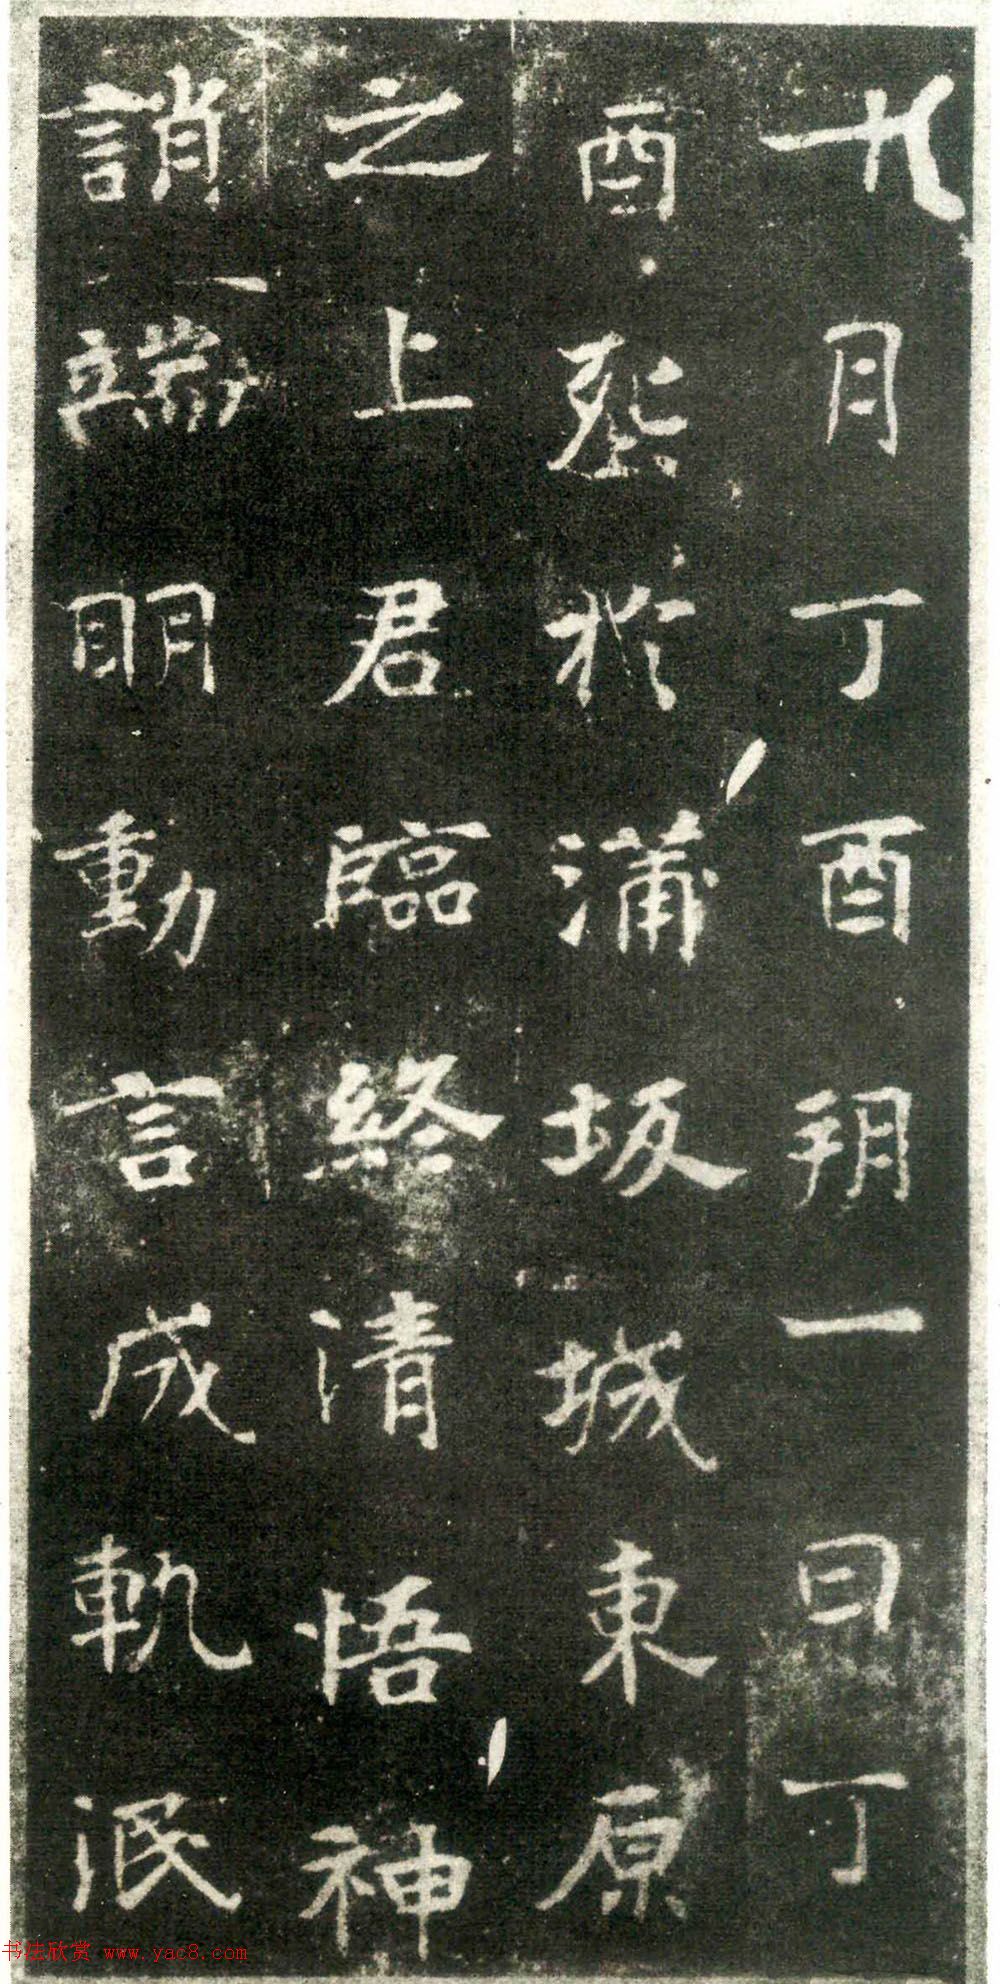 九月丁酉朔一日丁
酉葬於蒲坂城東原
之上君臨終清悟神
誚端明動言成軌泯
书法欣赏 www.yac8.com